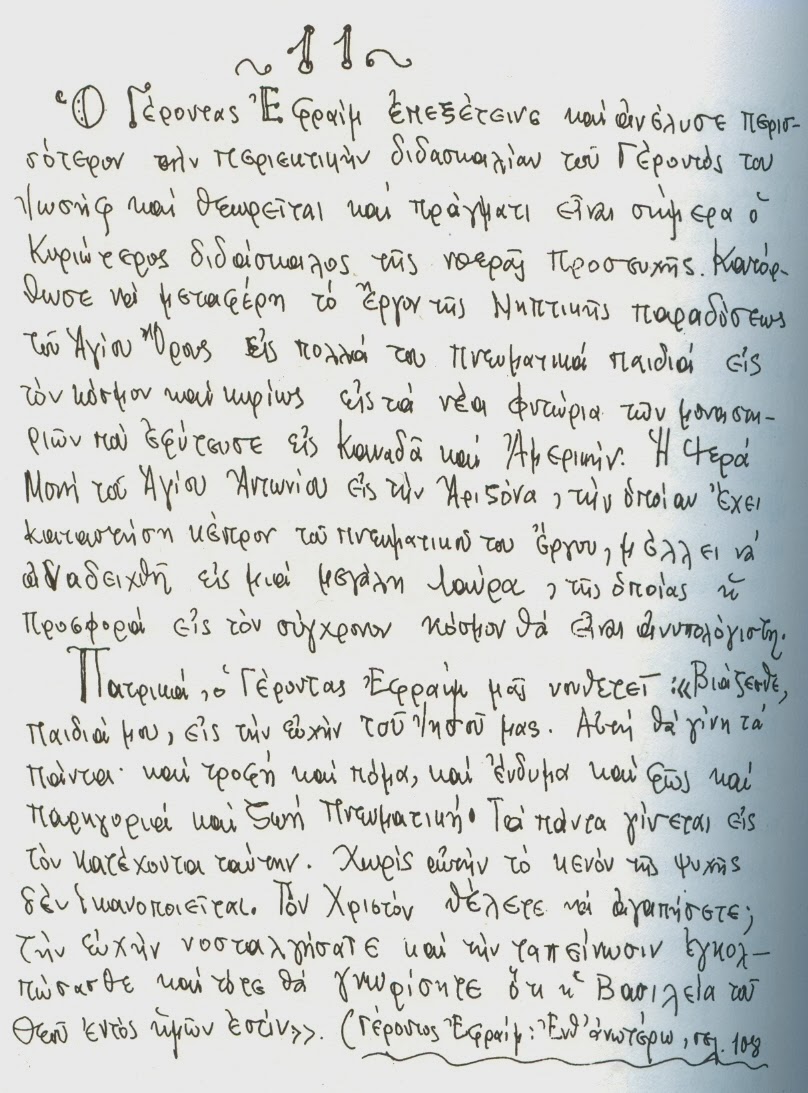 ~ 11 ~
Ὁ Γέροντας Ἐφραὶμ ἐπεξέτεινε καὶ ἀνέλυσε περισ-
σότερον τὴν περιεκτικὴν διδασκαλίαν τοῦ Γέροντός του
Ἰωσὴφ καὶ θεωρεῖται καὶ πράγματι εἶναι σήμερα ὁ
Κυριώτερος διδάσκαλος τῆς νοερᾶς προσευχῆς. Κατόρ-
θωσε νὰ μεταφέρη τὸ ἔργον τῆς Νηπτικῆς παραδόσεως
τοῦ Ἁγίου Ὄρους εἰς πολλά του πνευματικὰ παιδιὰ εἰς
τὸν κόσμον καὶ κυρίως εἰς τὰ νέα φυτώρια τῶν μοναστη-
ριῶν ποὺ ἐφύτευσε εἰς Καναδᾶ καὶ Ἀμερικήν. Ἡ Ἱερὰ
Μονὴ τοῦ Ἁγίου Ἀντωνίου εἰς τὴν Ἀριζόνα, τὴν ὁποίαν ἔχει
καταστήση κέντρον τοῦ πνευματικοῦ του ἔργου, μέλλει νὰ
ἀναδειχθῆ εἰς μιὰ μεγάλη Λαύρα, τῆς ὁποίας ἡ
προσφορὰ εἰς τὸν σύγχρονον κόσμον θὰ εἶναι ἀνυπολόγιστη.
Πατρικά, ὁ Γέροντας Ἐφραὶμ μᾶς νουθετεῖ: «Βιάζεσθε,
παιδιά μου, εἰς τὴν εὐχὴν τοῦ Ἰησοῦ μας. Αὐτὴ θὰ γίνη τὰ
πάντα· καὶ τροφὴ καὶ πόμα, καὶ ἔνδυμα καὶ φῶς καὶ
παρηγοριὰ καὶ ζωὴ Πνευματική. Τὰ πάντα γίνεται εἰς
τὸν κατέχοντα ταύτην. Χωρὶς αὐτὴν τὸ κενὸν τῆς ψυχῆς
δὲν ἱκανοποιεῖται. Τὸν Χριστὸν θέλετε νὰ ἀγαπήσετε;
Τὴν εὐχὴν νοσταλγήσατε καὶ τὴν ταπείνωσιν ἐγκολ-
πώσασθε καὶ τότε θὰ γνωρίσητε ὅτι ἡ Βασιλεία τοῦ
Θεοῦ ἐντὸς ἡμῶν ἐστίν». (Γέροντος Ἐφραίμ: Ἔνθ' ἀνωτέρω, σελ. 108